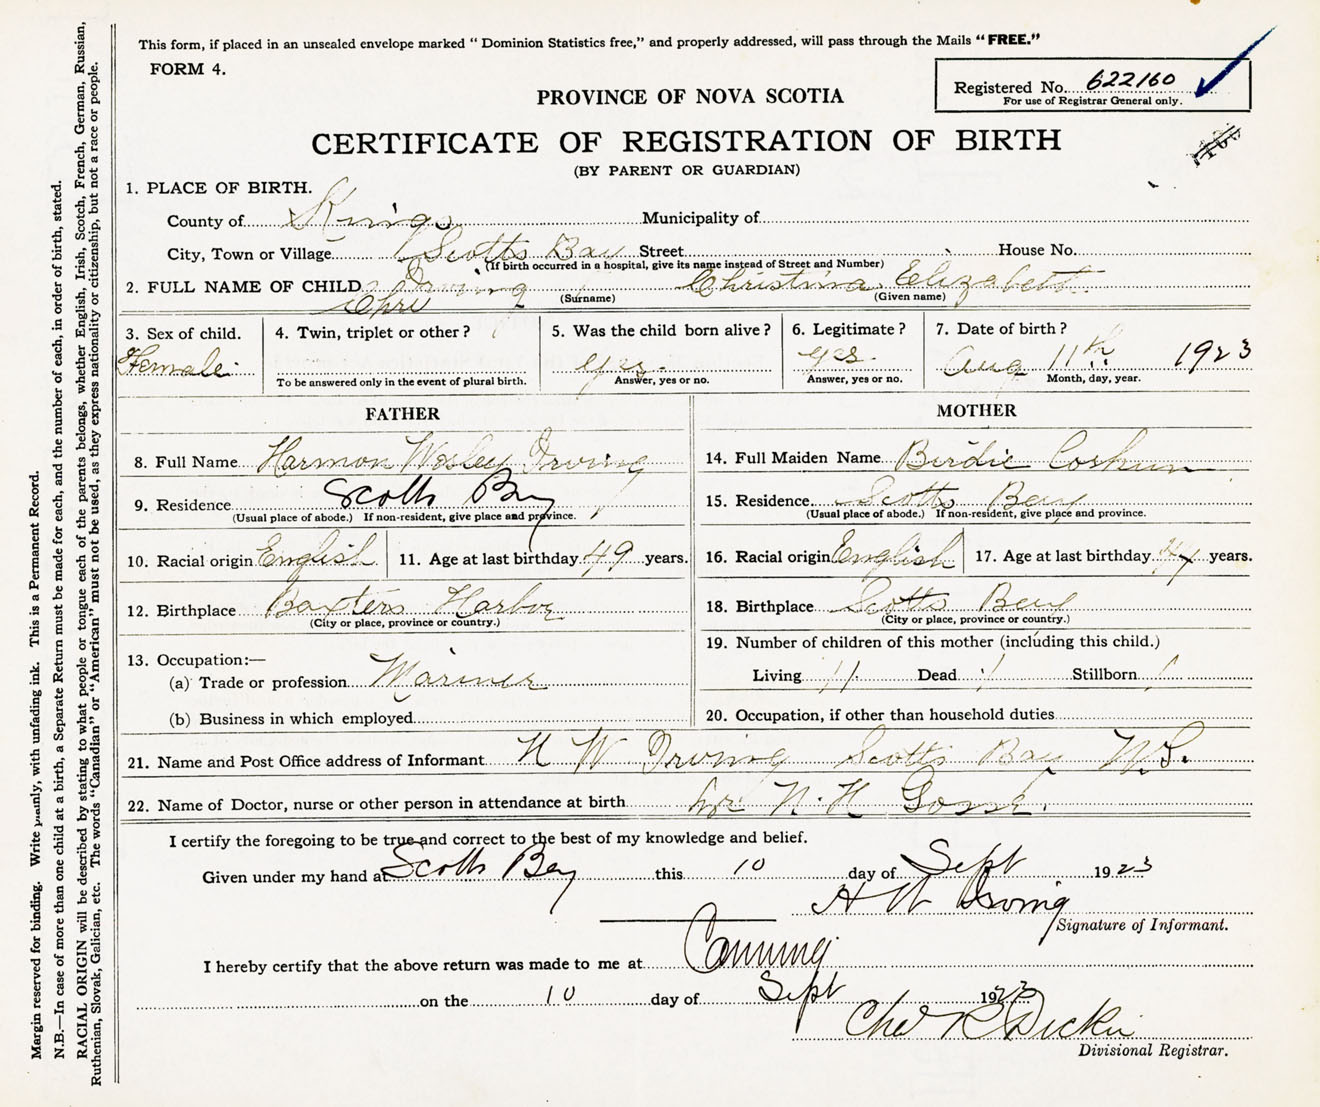 This form, if placed in an unsealed envelope marked "Dominion Statistics free," and properly addressed, will pass through the Mails "FREE."
FORM 4.
Registered No. 622160
For use of Registrar General only.
PROVINCE OF NOVA SCOTIA
CERTIFICATE OF REGISTRATION OF BIRTH
(BY PARENT OR GUARDIAN)
1. PLACE OF BIRTH.
County of Kings Municipality of
City, Town or Village Scotts Bay Street House No.
(If birth occurred in a hospital, give its name instead of Street and Number)
2. FULL NAME OF CHILD Irving Christina Elizabeth
Chri (Surname) (Given name)
3. Sex of child. 4. Twin, triplet or other? 5. Was the child born alive? 6. Legitimate? 7. Date of birth?
Female yes. yes. Aug 11th 1923
To be answered only in the event of plural birth. Answer, yes or no. Answer, yes or no. Month, day, year.
FATHER
8. Full Name Harmon Wesley Irving
9. Residence Scotts Bay
(Usual place of abode.) If non-resident, give place and province.
10. Racial origin English 11. Age at last birthday 49 years.
12. Birthplace Baxters Harbor
(City or place, province or country.)
13. Occupation:—
(a) Trade or profession Mariner
(b) Business in which employed
MOTHER
14. Full Maiden Name Birdie Corkum
15. Residence Scotts Bay
(Usual place of abode.) If non-resident, give place and province.
16. Racial origin English 17. Age at last birthday years.
18. Birthplace Scotts Bay
(City or place, province or country.)
19. Number of children of this mother (including this child.)
Living 11 Dead 1 Stillborn 1
20. Occupation, if other than household duties
21. Name and Post Office address of Informant H W Irving Scotts Bay N.S.
22. Name of Doctor, nurse or other person in attendance at birth N. H
I certify the foregoing to be true and correct to the best of my knowledge and belief.
Given under my hand at Scotts Bay this 10 day of Sept 1923
H W Irving
Signature of Informant.
I hereby certify that the above return was made to me at Canning
on the 10 day of Sept 1923
Chas R Dickie
Divisional Registrar.
Margin reserved for binding. Write plainly, with unfading ink. This is a Permanent Record.
N.B.—In case of more than one child at a birth, a Separate Return must be made for each, and the number of each, in order of birth, stated.
RACIAL ORIGIN will be described by stating to what people or tongue each of the parents belongs, whether English, Irish, Scotch, French, German, Russian,
Ruthenian, Slovak, Galician, etc. The words "Canadian" or "American" must not be used, as they express nationality or citizenship, but not a race or people.